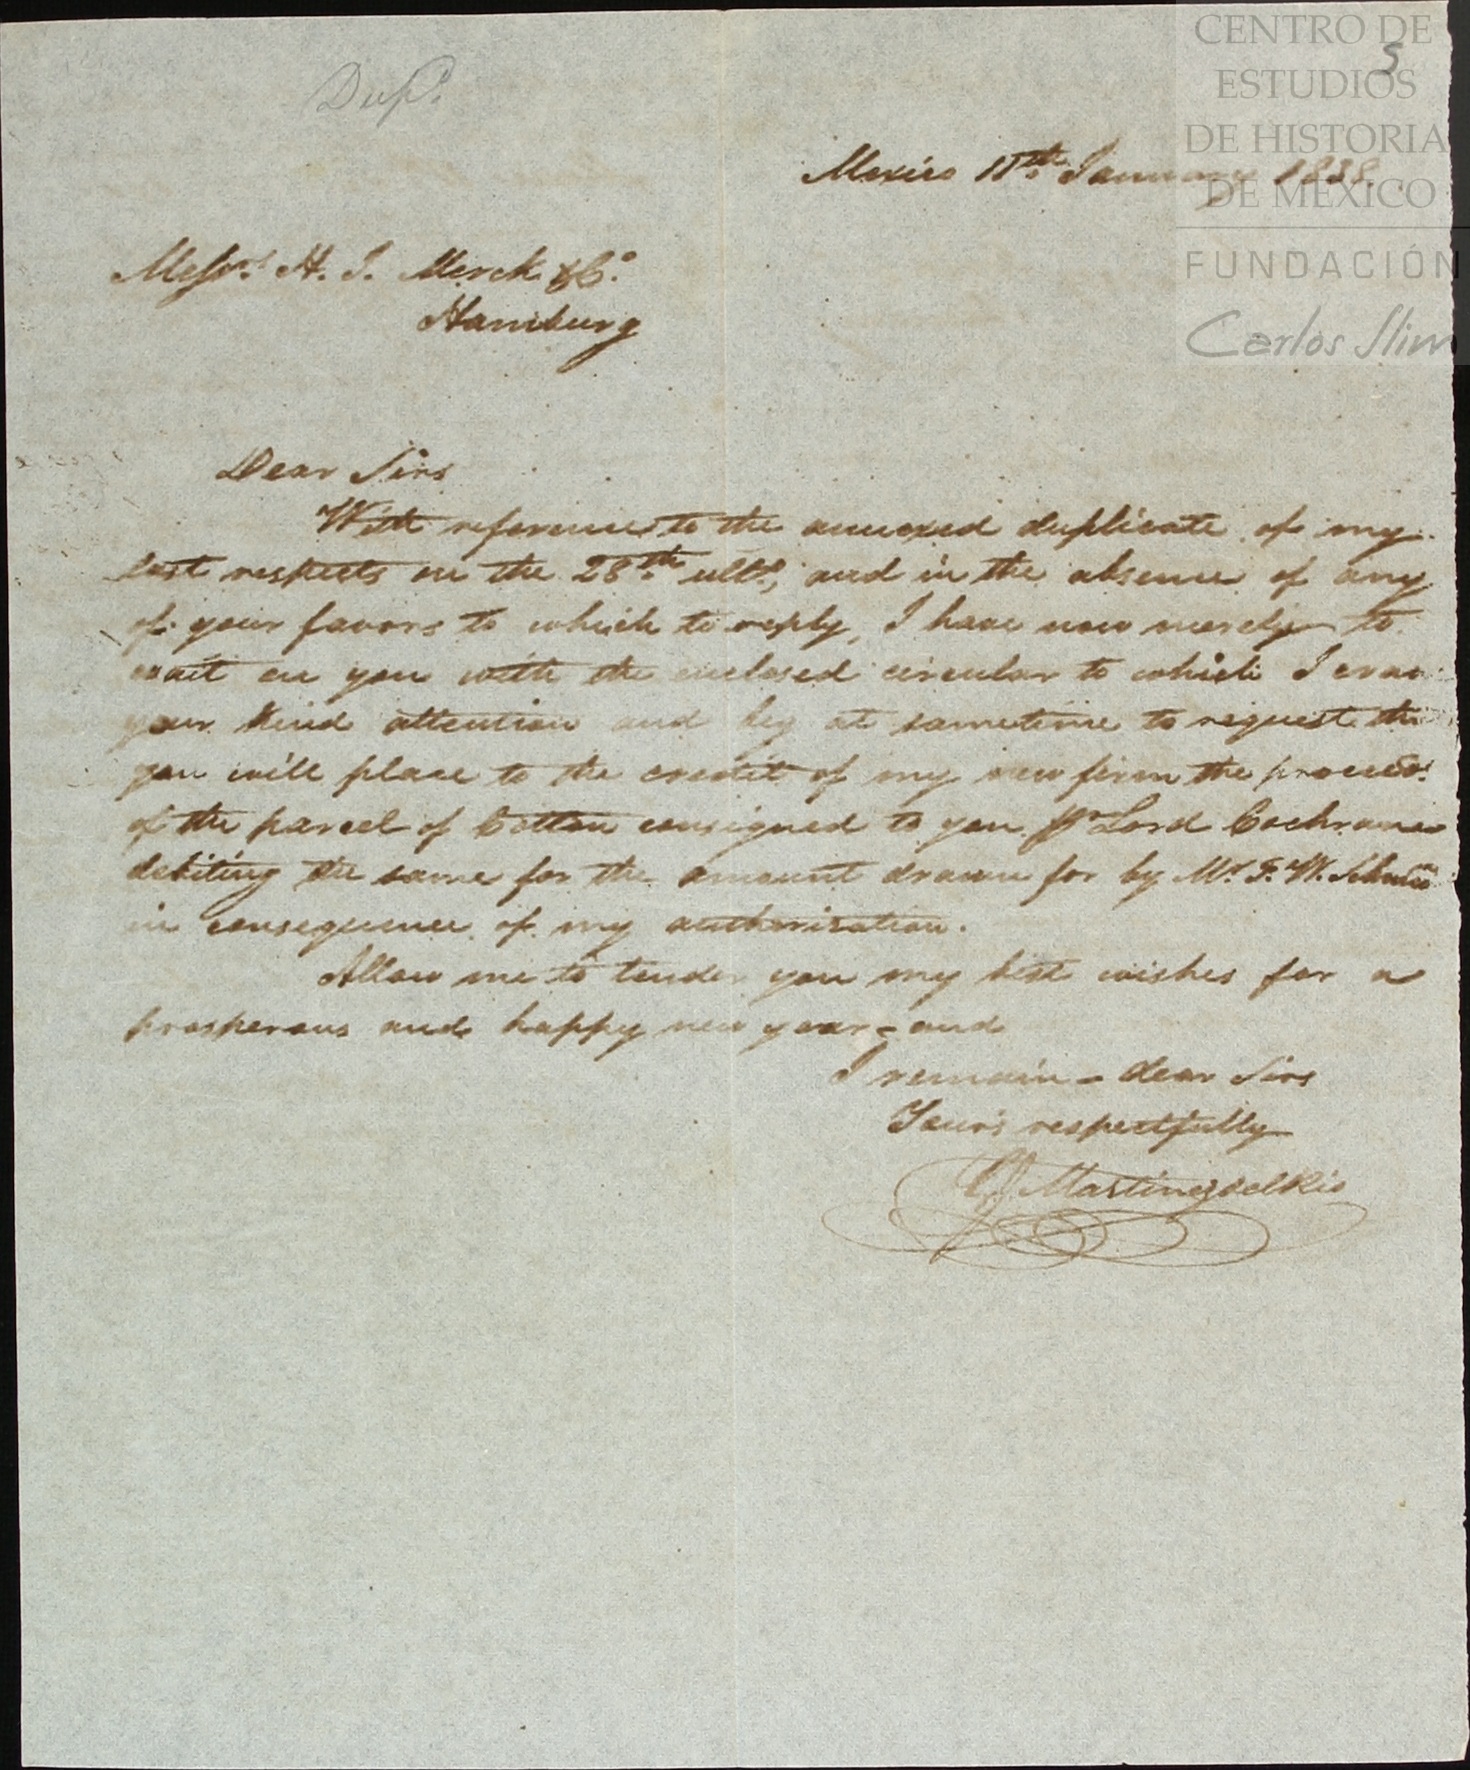 CENTRO DE
ESTUDIOS
DE HISTORIA
DE MÉXICO
FUNDACIÓN
Carlos Slim
5
Dupº.
Mexico 11th January 1838.
Messrs. H. J. Merck & Co.
Hamburg
Dear Sirs
With reference to the annexed duplicate of my
last respects on the 28th ulto, and in the absence of any
of your favors to which to reply, I have now merely to
wait on you with the enclosed circular to which I crave
your kind attention and beg at sametime to request tha
you will place to the credit of my new firm the proceeds
of the parcel of Cotton consigned to you pr Lord Cochrane
debiting the same for the amount drawn for by Mr. F. W.
in consequence of my authorisation.
Allow me to tender you my best wishes for a
prosperous and happy new year - and
I remain - dear Sirs
Yours respectfully
Martinez del Rio